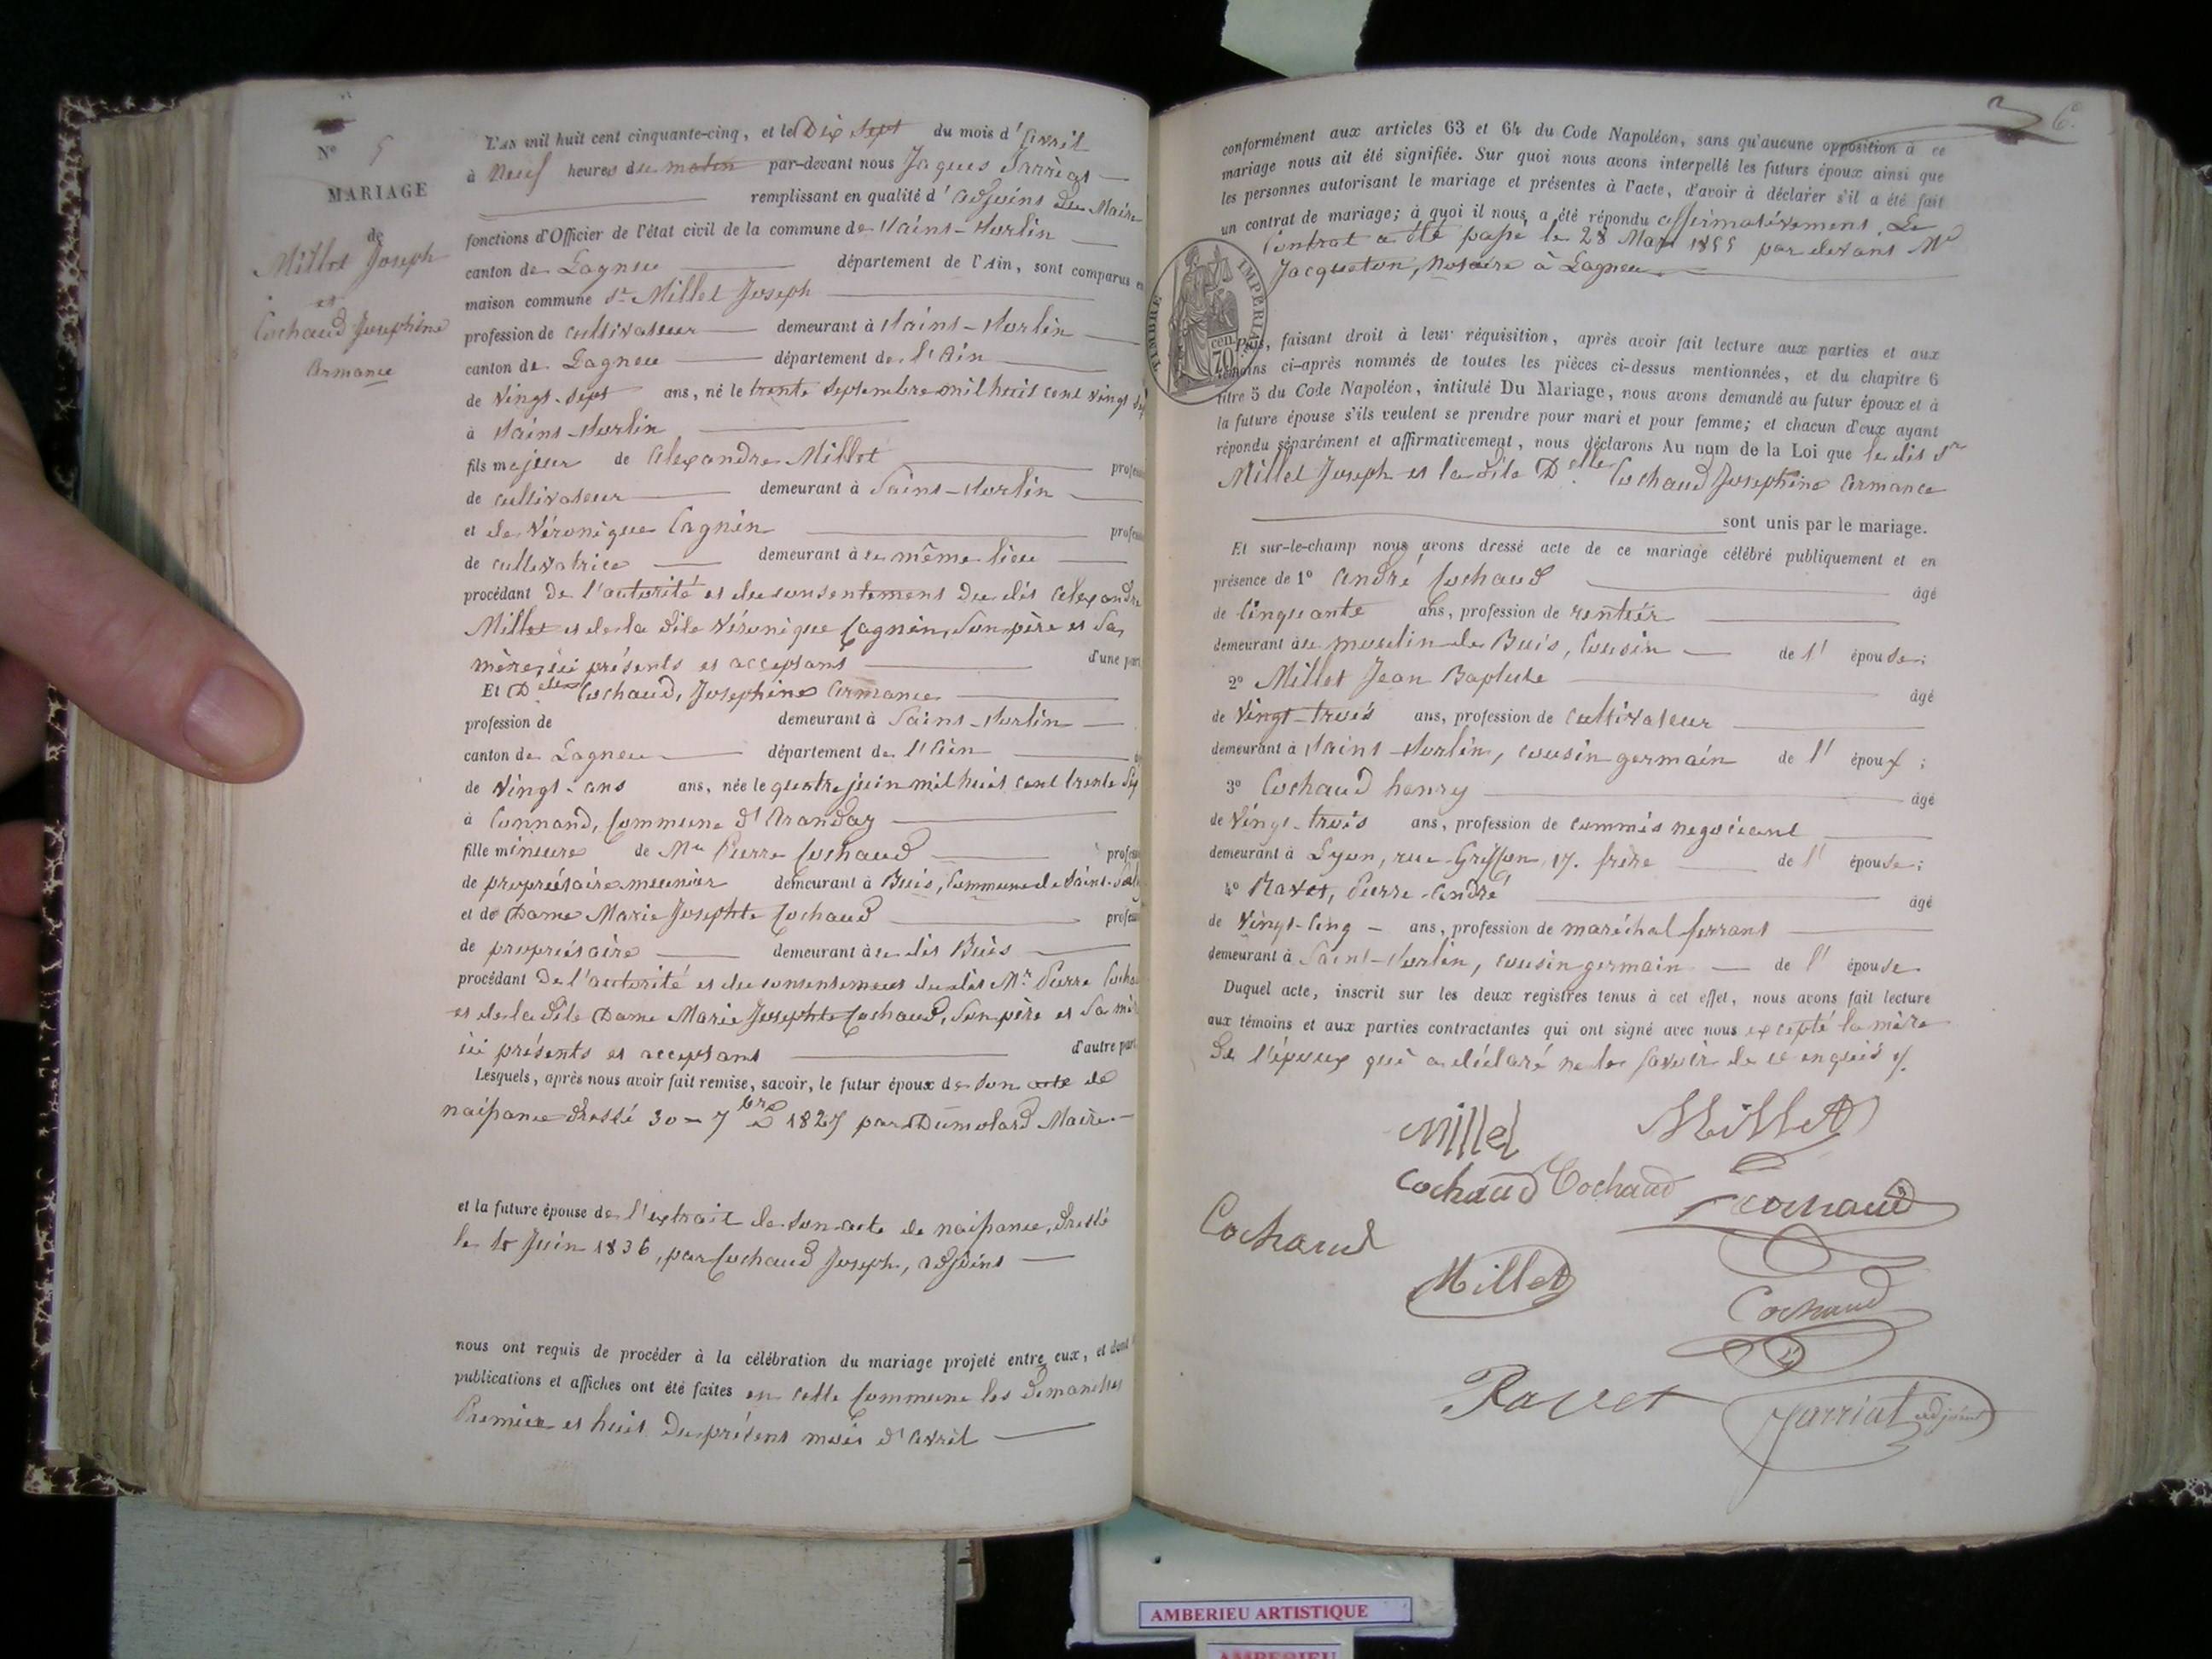 N° 5
MARIAGE
de
Millet Joseph
et
Cochaud Josephine
Armance
L'AN mil huit cent cinquante-cinq, et le Dix Sept du mois d'Avril
à Neuf heures du matin par-devant nous Jaques Jarriat
remplissant en qualité d'adjoint du Maire
fonctions d'Officier de l'état civil de la commune de Saint-Sorlin
canton de Lagneu département de l'Ain, sont comparus en
maison commune Sr Millet Joseph
profession de cultivateur demeurant à Saint-Sorlin
canton de Lagneu département de l'Ain
de Vingt-Sept ans, né le trente Septembre mil huit cent vingt
à Saint-Sorlin
fils majeur de Alexandre Millet
de cultivateur demeurant à Saint-Sorlin
et de Véronique Cagnin
de cultivatrice demeurant à le même lieu
procédant De l'autorité et du consentement du dit Alexandre
Millet et de la dite Véronique Cagnin, Son père et Sa
mère, ici présents et acceptant d'une part
Et Delle Cochaud, Josephine Armance
profession de demeurant à Saint-Sorlin
canton de Lagneu département de l'Ain
de Vingt-ans ans, née le quatre juin mil huit cent trente
à Connand, Commune d'Aranday
fille mineure de Mr Pierre Cochaud
de propriétaire meunier demeurant à Buis, Commune de Saint-
et de Dame Marie Josephte Cochaud
de propriétaire demeurant à le dit Buis
procédant De l'autorité et du consentement du dit Mr Pierre
et de la dite Dame Marie Josephte Cochaud, Son père et Sa
ici présents et acceptant d'autre part
Lesquels, après nous avoir fait remise, savoir, le futur époux de Son acte de
naissance dressé 30 - 7bre 1827 par Dumolard Maire
et la future épouse de l'extrait de Son acte de naissance, dressé
le Juin 1836, par Cochaud Joseph, adjoint
nous ont requis de procéder à la célébration du mariage projeté entre eux, et dont
publications et affiches ont été faites en cette Commune les Dimanches
Premier et huit Du présent mois d'Avril
6.
conformément aux articles 63 et 64 du Code Napoléon, sans qu'aucune opposition à ce
mariage nous ait été signifiée. Sur quoi nous avons interpellé les futurs époux ainsi que
les personnes autorisant le mariage et présentes à l'acte, d'avoir à déclarer s'il a été fait
un contrat de mariage; à quoi il nous a été répondu affirmativement. Le
Contrat a été passé le 28 Mars 1855 par devant Me
Jacqueton, Notaire à Lagneu
TIMBRE IMPÉRIAL
70 cen
faisant droit à leur réquisition, après avoir fait lecture aux parties et aux
témoins ci-après nommés de toutes les pièces ci-dessus mentionnées, et du chapitre 6
titre 5 du Code Napoléon, intitulé Du Mariage, nous avons demandé au futur époux et à
la future épouse s'ils veulent se prendre pour mari et pour femme; et chacun d'eux ayant
répondu séparément et affirmativement, nous déclarons Au nom de la Loi que le dit Sr
Millet Joseph et la dite Delle Cochaud Josephine Armance
sont unis par le mariage.
Et sur-le-champ nous avons dressé acte de ce mariage célébré publiquement et en
présence de 1° André Cochaud âgé
de Cinquante ans, profession de rentier
demeurant à le moulin de Buis, Cousin de l'épouse;
2° Millet Jean Baptiste âgé
de Vingt-trois ans, profession de cultivateur
demeurant à Saint-Sorlin, cousin germain de l'époux;
3° Cochaud henry âgé
de Vingt-trois ans, profession de commis negociant
demeurant à Lyon, rue Griffon, 17. frère de l'épouse;
4° Ravet, Pierre-André âgé
de Vingt-Cinq ans, profession de maréchal ferrant
demeurant à Saint-Sorlin, cousin germain de l'épouse
Duquel acte, inscrit sur les deux registres tenus à cet effet, nous avons fait lecture
aux témoins et aux parties contractantes qui ont signé avec nous excepté la mère
De l'époux qui a déclaré ne le savoir de ce enquis
Millet Millet
Cochaud Cochaud Cochaud
Cochaud
Millet
Cochaud
Ravet
Jarriat adjoint
AMBERIEU ARTISTIQUE
AMBERIEU